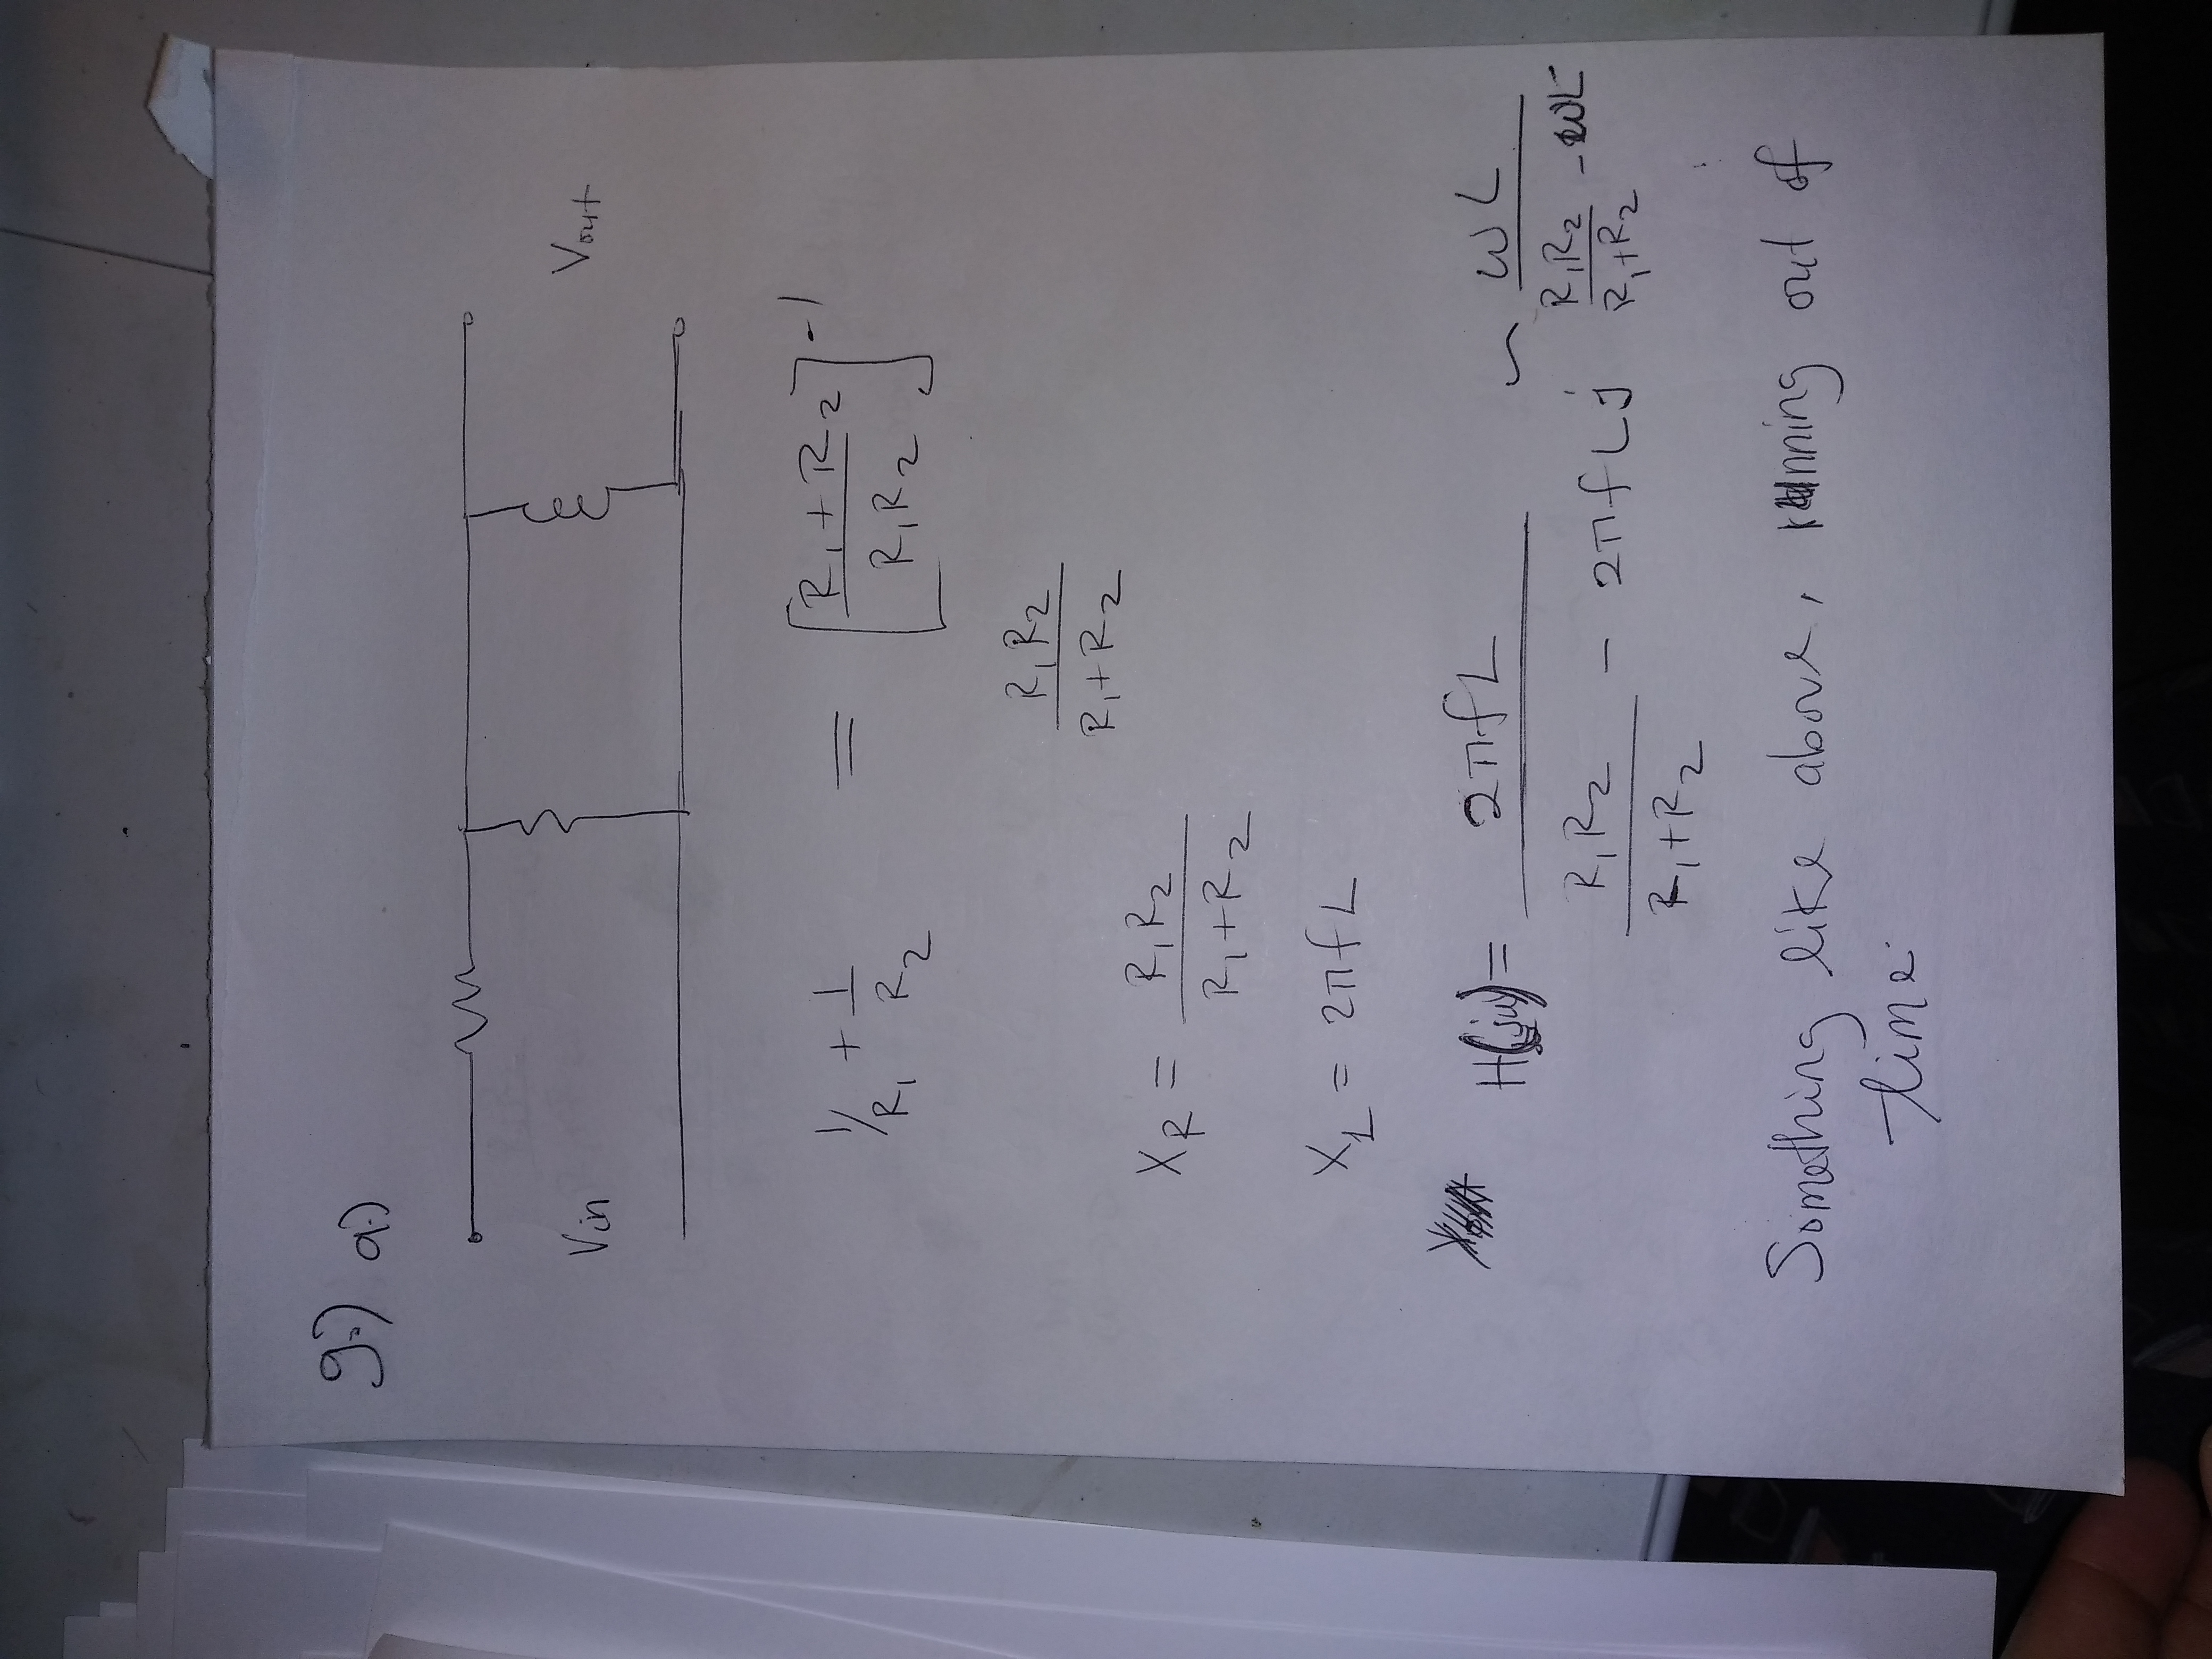 9.) a.)
Vin Vout
1/R₁ + 1/R₂ = [(R₁+R₂)/(R₁R₂)]⁻¹
R₁R₂/(R₁+R₂)
X_R = R₁R₂/(R₁+R₂)
X_L = 2πfL
H(jω) = 2πfL/(R₁R₂/(R₁+R₂) - 2πfLj) ~ ωL/(R₁R₂/(R₁+R₂) - ωL)
Something like above, running out of
time.